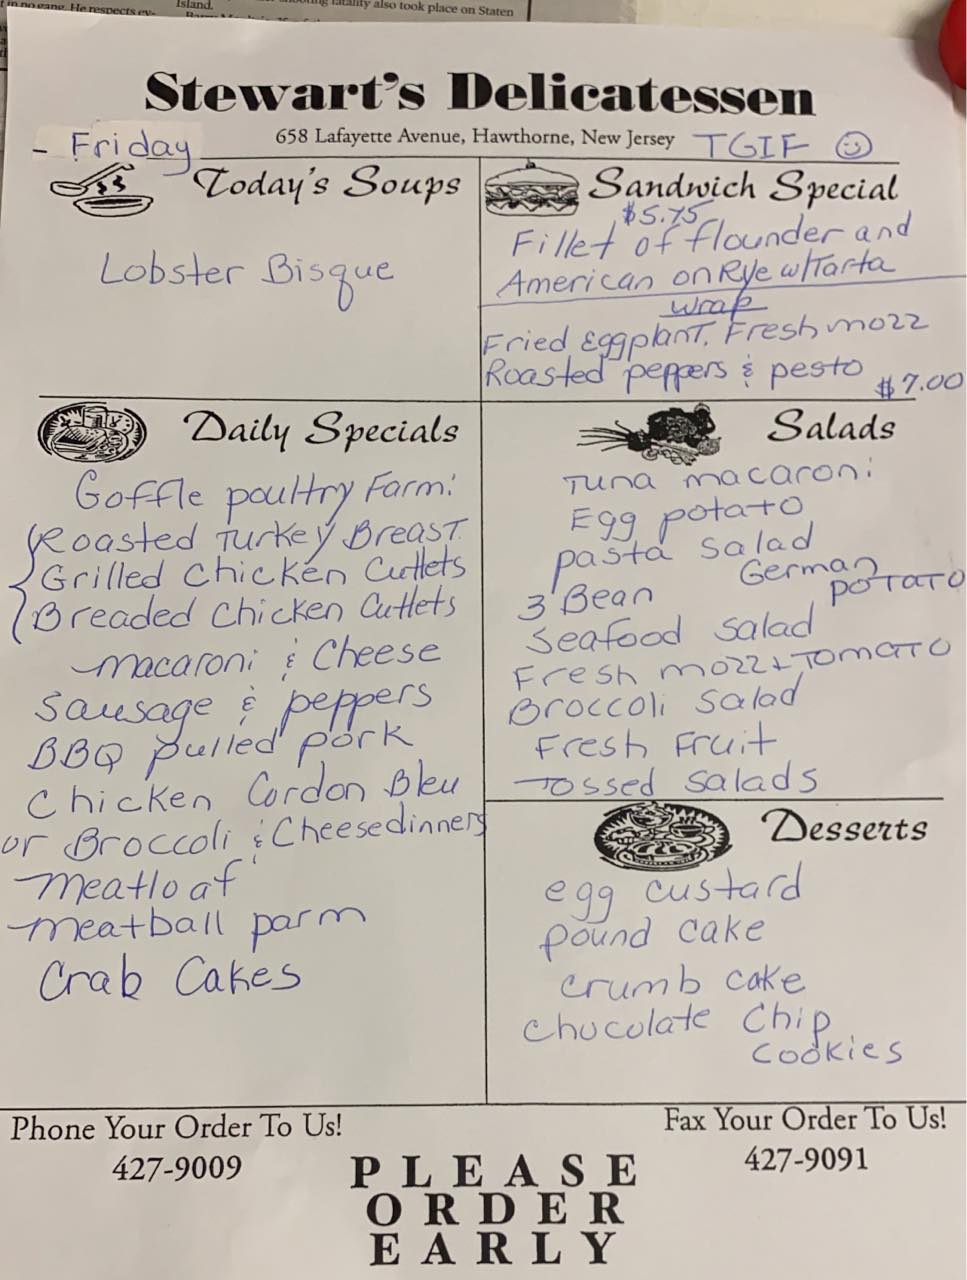 Island.
fatality also took place on Staten
in no gang. He respects ev-
Stewart's Delicatessen
658 Lafayette Avenue, Hawthorne, New Jersey
- Friday
TGIF ☺
Today's Soups
Lobster Bisque
Sandwich Special
$5.75
Fillet of flounder and
American on Rye w/Tarta
wrap
Fried Eggplant, Fresh mozz
Roasted peppers & pesto $7.00
Daily Specials
Goffle poultry Farm:
Roasted Turkey Breast
Grilled Chicken Cutlets
Breaded Chicken Cutlets
macaroni & Cheese
Sausage & peppers
BBQ pulled pork
Chicken Cordon Bleu
or Broccoli & Cheese dinners
meatloaf
meatball parm
Crab Cakes
Salads
Tuna macaroni
Egg potato
pasta salad
German
potato
3 Bean
Seafood salad
Fresh mozz + Tomato
Broccoli salad
Fresh Fruit
Tossed salads
Desserts
egg custard
pound cake
crumb cake
Chocolate Chip
cookies
Phone Your Order To Us!
427-9009
Fax Your Order To Us!
427-9091
PLEASE
ORDER
EARLY